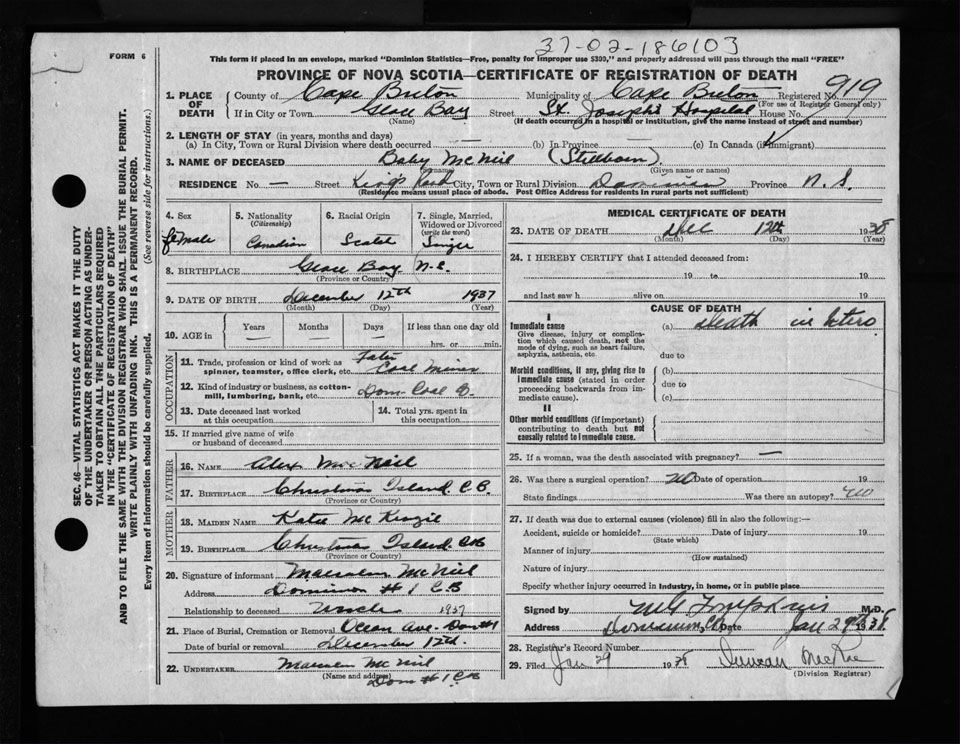 37-02-186103
FORM 6
This form if placed in an envelope, marked "Dominion Statistics—Free, penalty for improper use $300," and properly addressed will pass through the mail "FREE"
PROVINCE OF NOVA SCOTIA—CERTIFICATE OF REGISTRATION OF DEATH
1. PLACE OF DEATH County of Cape Breton Municipality of Cape Breton Registered No. 919
(For use of Registrar General only)
If in City or Town Glace Bay Street St. Joseph's Hospital House No.
(Name) (If death occurred in a hospital or institution, give the name instead of street and number)
2. LENGTH OF STAY (in years, months and days)
(a) In City, Town or Rural Division where death occurred (b) In Province (c) In Canada (if immigrant)
3. NAME OF DECEASED Baby McNeil (Stillborn)
(Surname) (Given name or names)
RESIDENCE No. — Street King's Road City, Town or Rural Division Dominion Province N. S.
(Residence means usual place of abode. Post Office Address for residents in rural parts not sufficient)
4. Sex
female
5. Nationality
(Citizenship)
Canadian
6. Racial Origin
Scotch
7. Single, Married, Widowed or Divorced
(write the word)
Single
8. BIRTHPLACE Glace Bay N.S.
(Province or Country)
9. DATE OF BIRTH December 12th 1937
(Month) (Day) (Year)
10. AGE in Years Months Days If less than one day old
— — — hrs. or min.
OCCUPATION
11. Trade, profession or kind of work as spinner, teamster, office clerk, etc. Coal Miner
12. Kind of industry or business, as cotton-mill, lumbering, bank, etc. Dom Coal Co.
13. Date deceased last worked at this occupation
14. Total yrs. spent in this occupation
15. If married give name of wife or husband of deceased
FATHER
16. NAME Alex McNeil
17. BIRTHPLACE Christmas Island C.B.
(Province or Country)
MOTHER
18. MAIDEN NAME Katie McKenzie
19. BIRTHPLACE Christmas Island CB
(Province or Country)
20. Signature of informant Malcolm McNeil
Address Dominion #1 C B
Relationship to deceased Uncle 1937
21. Place of Burial, Cremation or Removal Ocean Ave. Dom #1
Date of burial or removal December 12th.
22. UNDERTAKER Malcolm McNeil
(Name and address) Dom #1 CB
MEDICAL CERTIFICATE OF DEATH
23. DATE OF DEATH Dec 12th 19
(Month) (Day) (Year)
24. I HEREBY CERTIFY that I attended deceased from:
19 to 19
and last saw h alive on 19
CAUSE OF DEATH
I
Immediate cause
Give disease, injury or complication which caused death, not the mode of dying, such as heart failure, asphyxia, asthenia, etc.
(a) Death in utero.
due to
Morbid conditions, if any, giving rise to immediate cause (stated in order proceeding backwards from immediate cause).
(b)
due to
(c)
II
Other morbid conditions (if important) contributing to death but not causally related to immediate cause.
25. If a woman, was the death associated with pregnancy? —
26. Was there a surgical operation? no Date of operation 19
State findings Was there an autopsy? no
27. If death was due to external causes (violence) fill in also the following:—
Accident, suicide or homicide? Date of injury 19
(State which)
Manner of injury
(How sustained)
Nature of injury
Specify whether injury occurred in industry, in home, or in public place
Signed by M G Tompkins M.D.
Address Dominion, CB, Date Jan 29th 1938
28. Registrar's Record Number
29. Filed Jan 29 1938 Duncan MacRae
(Division Registrar)
SEC. 46—VITAL STATISTICS ACT MAKES IT THE DUTY
OF THE UNDERTAKER OR PERSON ACTING AS UNDER-
TAKER TO OBTAIN ALL THE PARTICULARS REQUIRED
IN THE "CERTIFICATE OF REGISTRATION OF DEATH"
AND TO FILE THE SAME WITH THE DIVISION REGISTRAR WHO SHALL ISSUE THE BURIAL PERMIT.
WRITE PLAINLY WITH UNFADING INK. THIS IS A PERMANENT RECORD.
Every item of information should be carefully supplied. (See reverse side for instructions.)